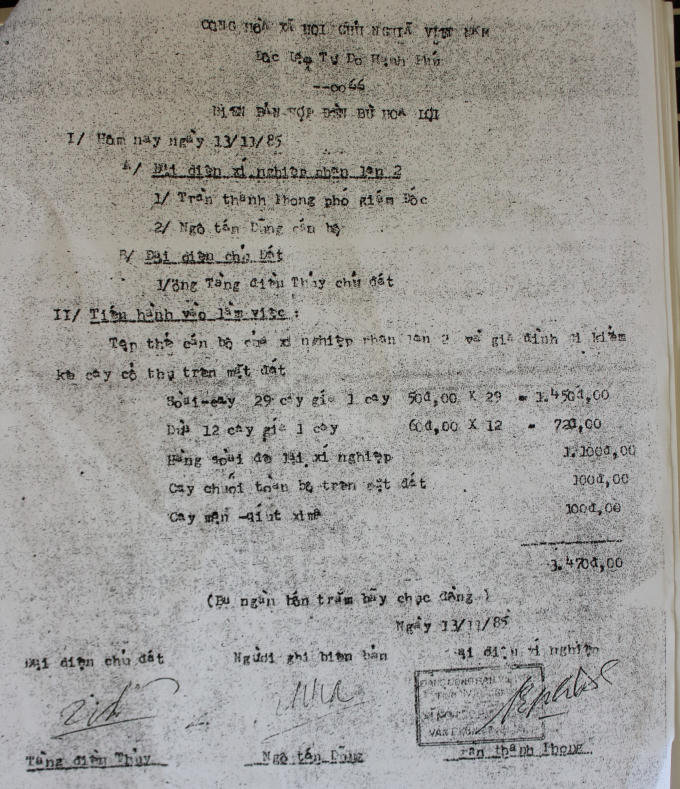 CỘNG HÒA XÃ HỘI CHỦ NGHĨA VIỆT NAM
Độc Lập Tự Do Hạnh Phú
--oo66
BIÊN BẢN HỢP ĐỀN BÙ HOA LỢI
I/ Hôm nay ngày 13/11/85
A/ Đại diện xí nghiệp phân lân 2
1/ Trần thành Phong phó giám Đốc
2/ Ngô tấn Dũng cán bộ
B/ Đại diện chủ Đất
1/Ông Tăng điều Thủy chủ đất
II/ Tiến hành vào làm việc :
Tập thể cán bộ của xí nghiệp phân lân 2 và gia đình đi kiểm
kê cây cổ thụ trên mặt đất
Soài-cây 29 cây giá 1 cây 50đ,00 X 29 = 1.450đ,00
Dừa 12 cây giá 1 cây 60đ,00 X 12 = 720,00
Hàng soài để lại xí nghiệp 1.100đ,00
Cây chuối toàn bộ trên mặt đất 100đ,00
Cây mận -quít 100đ,00
3.470đ,00
(Ba ngàn bốn trăm bãy chục đồng )
Ngày 13/11/85
Đại diện chủ đất Người ghi biên bản Đại diện xí nghiệp
Tăng điều Thủy Ngô tấn Dũng Trần thành Phong